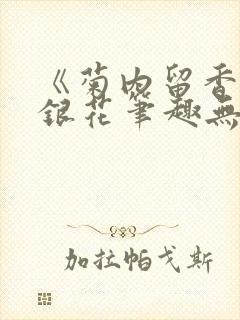 《菊内留香
銀花筆趣無
加拉帕戈斯